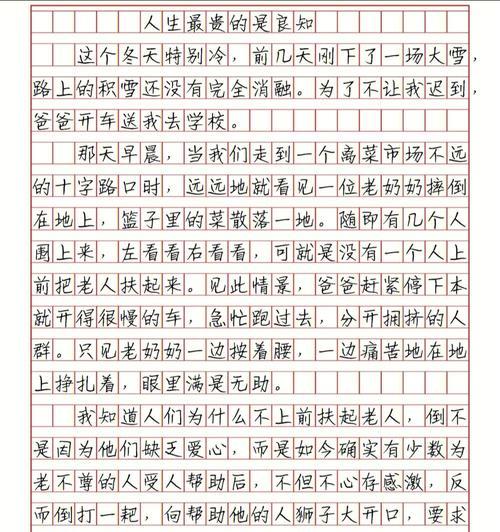 人生最贵的是良知
这个冬天特别冷，前几天刚下了一场大雪，
路上的积雪还没有完全消融。为了不让我迟到，
爸爸开车送我去学校。
那天早晨，当我们走到一个离菜市场不远
的十字路口时，远远地就看见一位老奶奶摔倒
在地上，篮子里的菜散落一地。随即有几个人
围上来，左看看右看看，可就是没有一个人上
前把老人扶起来。见此情景，爸爸赶紧停下本
就开得很慢的车，急忙跑过去，分开拥挤的人
群。只见老奶奶一边按着腰，一边痛苦地在地
上挣扎着，眼里满是无助。
我知道人们为什么不上前扶起老人，倒不
是因为他们缺乏爱心，而是如今确实有少数为
老不尊的人受人帮助后，不但不心存感激，反
而倒打一耙，向帮助他的人狮子大开口，要求